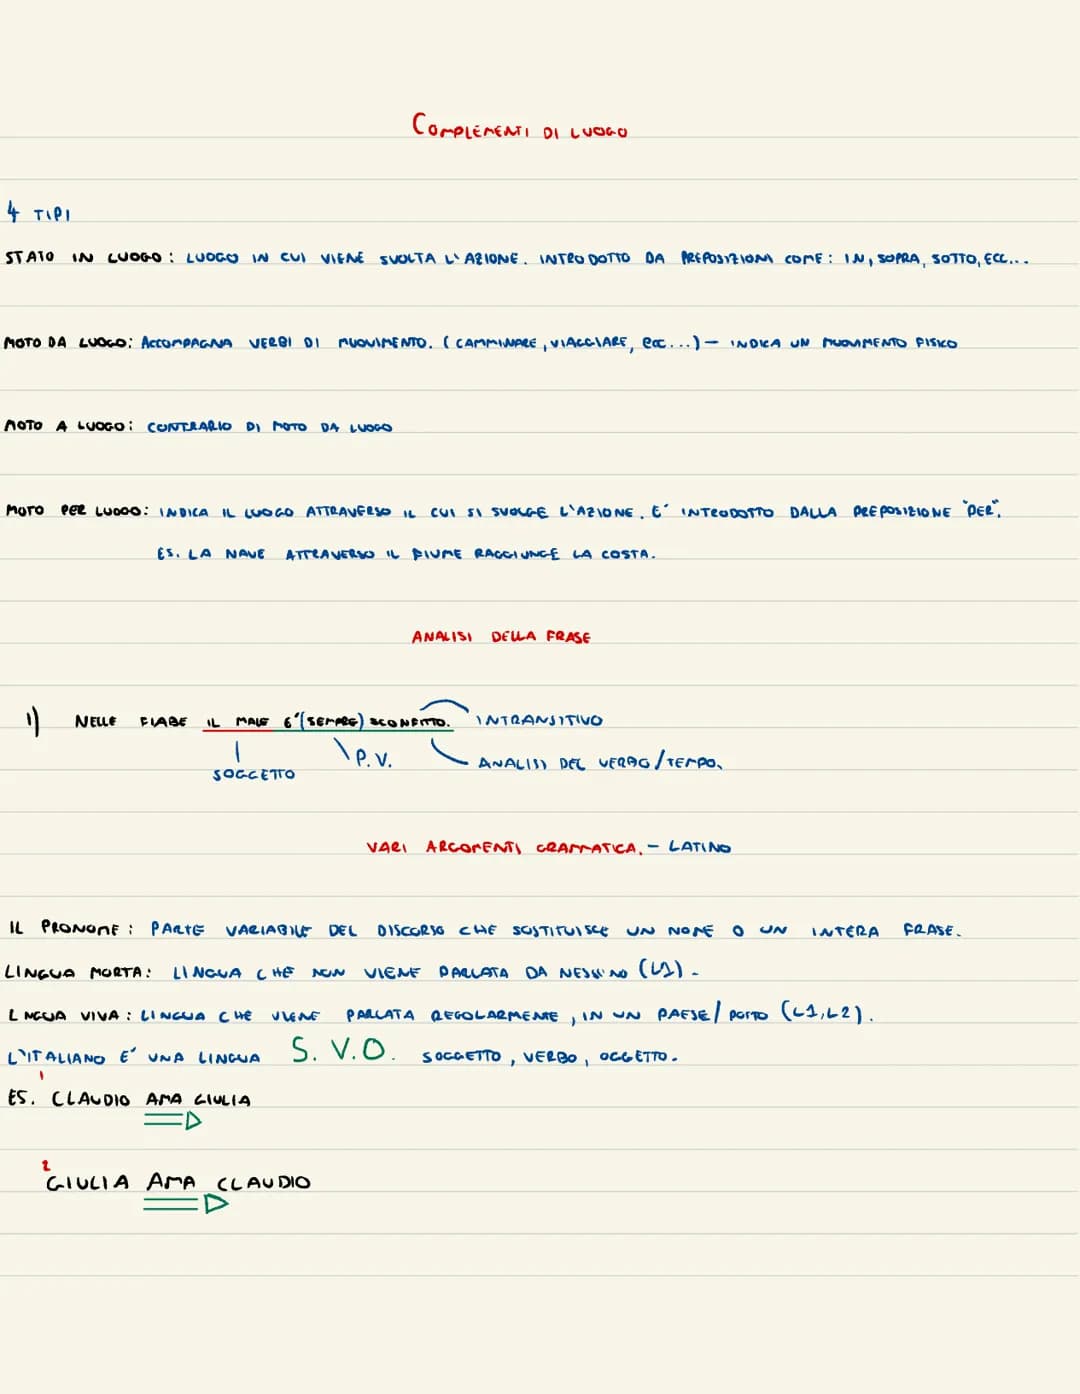 COMPLEMENTI DI LUOGO
4 TIPI
STATO IN LUOGO: LUOGO IN CUI VIENE SVOLTA L'AZIONE. INTRODOTTO DA PREPOSIZIONI COME: IN, SOPRA, SOTTO, ECC...
MOTO DA LUOGO: ACCOMPAGNA VERBI DI MUOVIMENTO. (CAMMINARE, VIAGGIARE, ecc...) - INDICA UN MUOVIMENTO FISICO
MOTO A LUOGO: CONTRARIO DI MOTO DA LUOGO
MOTO PER LUOGO: INDICA IL LUOGO ATTRAVERSO IL CUI SI SVOLGE L'AZIONE. E' INTRODOTTO DALLA PREPOSIZIONE "PER".
ES. LA NAVE ATTRAVERSO IL FIUME RAGGIUNGE LA COSTA.
ANALISI DELLA FRASE
1) NELLE FIABE IL MALE E' (SEMPRE) SCONFITTO. INTRANSITIVO
SOGGETTO P.V. ANALISI DEL VERBO/TEMPO.
VARI ARGOMENTI GRAMMATICA. - LATINO
IL PRONOME: PARTE VARIABILE DEL DISCORSO CHE SOSTITUISCE UN NOME O UN INTERA FRASE.
LINGUA MORTA: LINGUA CHE NON VIENE PARLATA DA NESSUNO (L1).
LNGUA VIVA: LINGUA CHE VIENE PARLATA REGOLARMENTE, IN UN PAESE/POSTO (L1,L2).
L'ITALIANO E' UNA LINGUA S. V.O. SOGGETTO, VERBO, OGGETTO.
1
ES. CLAUDIO AMA GIULIA
2
GIULIA AMA CLAUDIO